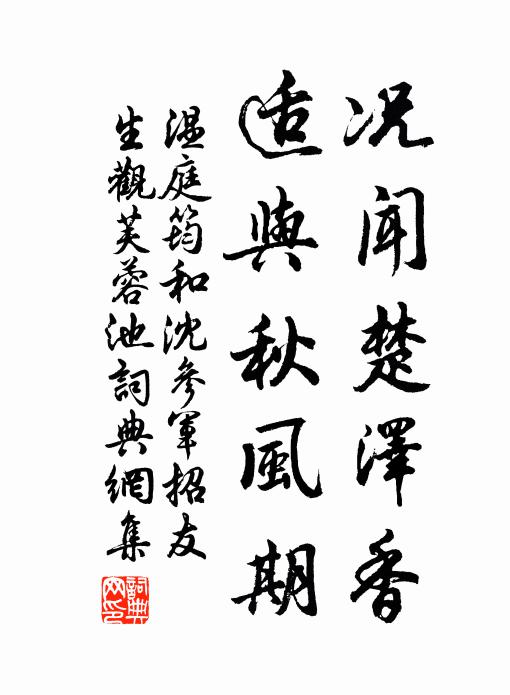 况闻楚澤香
适與秋風期
温庭筠和沈參軍招友
生觀芙蓉池詞典網集
詞典网印